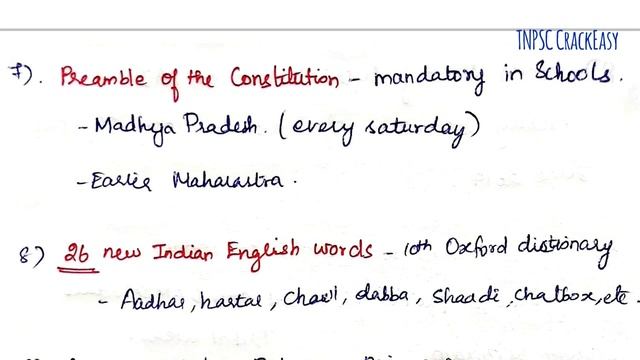 TNPSC CRACKEASY
7). Preamble of the Constitution - mandatory in Schools.
- Madhya Pradesh. (every saturday)
- Earlier Maharastra.
8) 26 new Indian English words - 10th Oxford dictionary
- Aadhar, hartal, Chawl, dabba, Shaadi, Chatbox, etc.